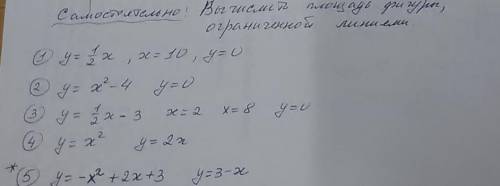 Самостоятельно: Вычислить площадь фигуры,
ограниченной линиями
① y = 1/2 x , x = 10 , y = 0
② y = x² - 4 y = 0
③ y = 1/2 x - 3 x = 2 x = 8 y = 0
④ y = x² y = 2x
* ⑤ y = -x² + 2x + 3 y = 3 - x